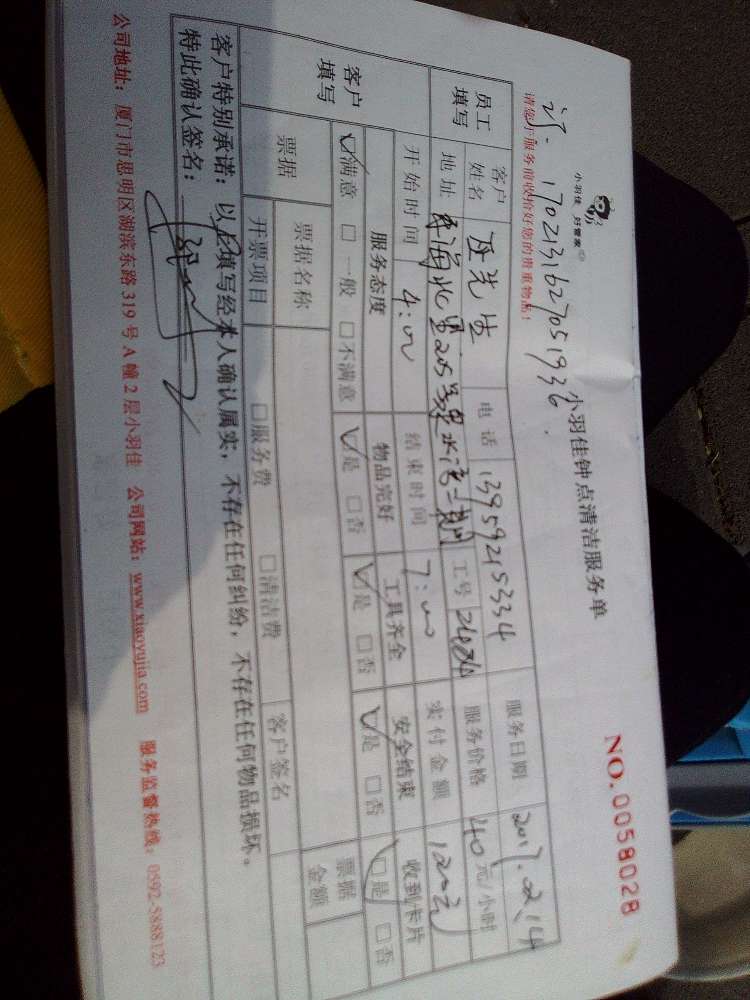 小羽佳 好管家
小羽佳钟点清洁服务单
NO.0058028
1702131627051936
请您于服务前收拾好您的贵重物品!
员工填写 客户姓名 先生 电话 13959215334 服务日期 2017.02.14
地址 工号 服务价格 40元/小时
开始时间 4:00 结束时间 7:00 实付金额 120元
客户填写 服务态度 物品完好 工具齐全 安全结束 收到卡片
☑满意 □一般 □不满意 ☑是 □否 ☑是 □否 ☑是 □否 ☑是 □否
票据 票据名称 客户签名 票据金额
开票项目 □服务费 □清洁费
客户特别承诺:以上填写经本人确认属实,不存在任何纠纷,不存在任何物品损坏。
特此确认签名:
公司地址:厦门市思明区湖滨东路319号A幢2层小羽佳 公司网站:www.xiaoyujia.com 服务监督热线:0592-5888123